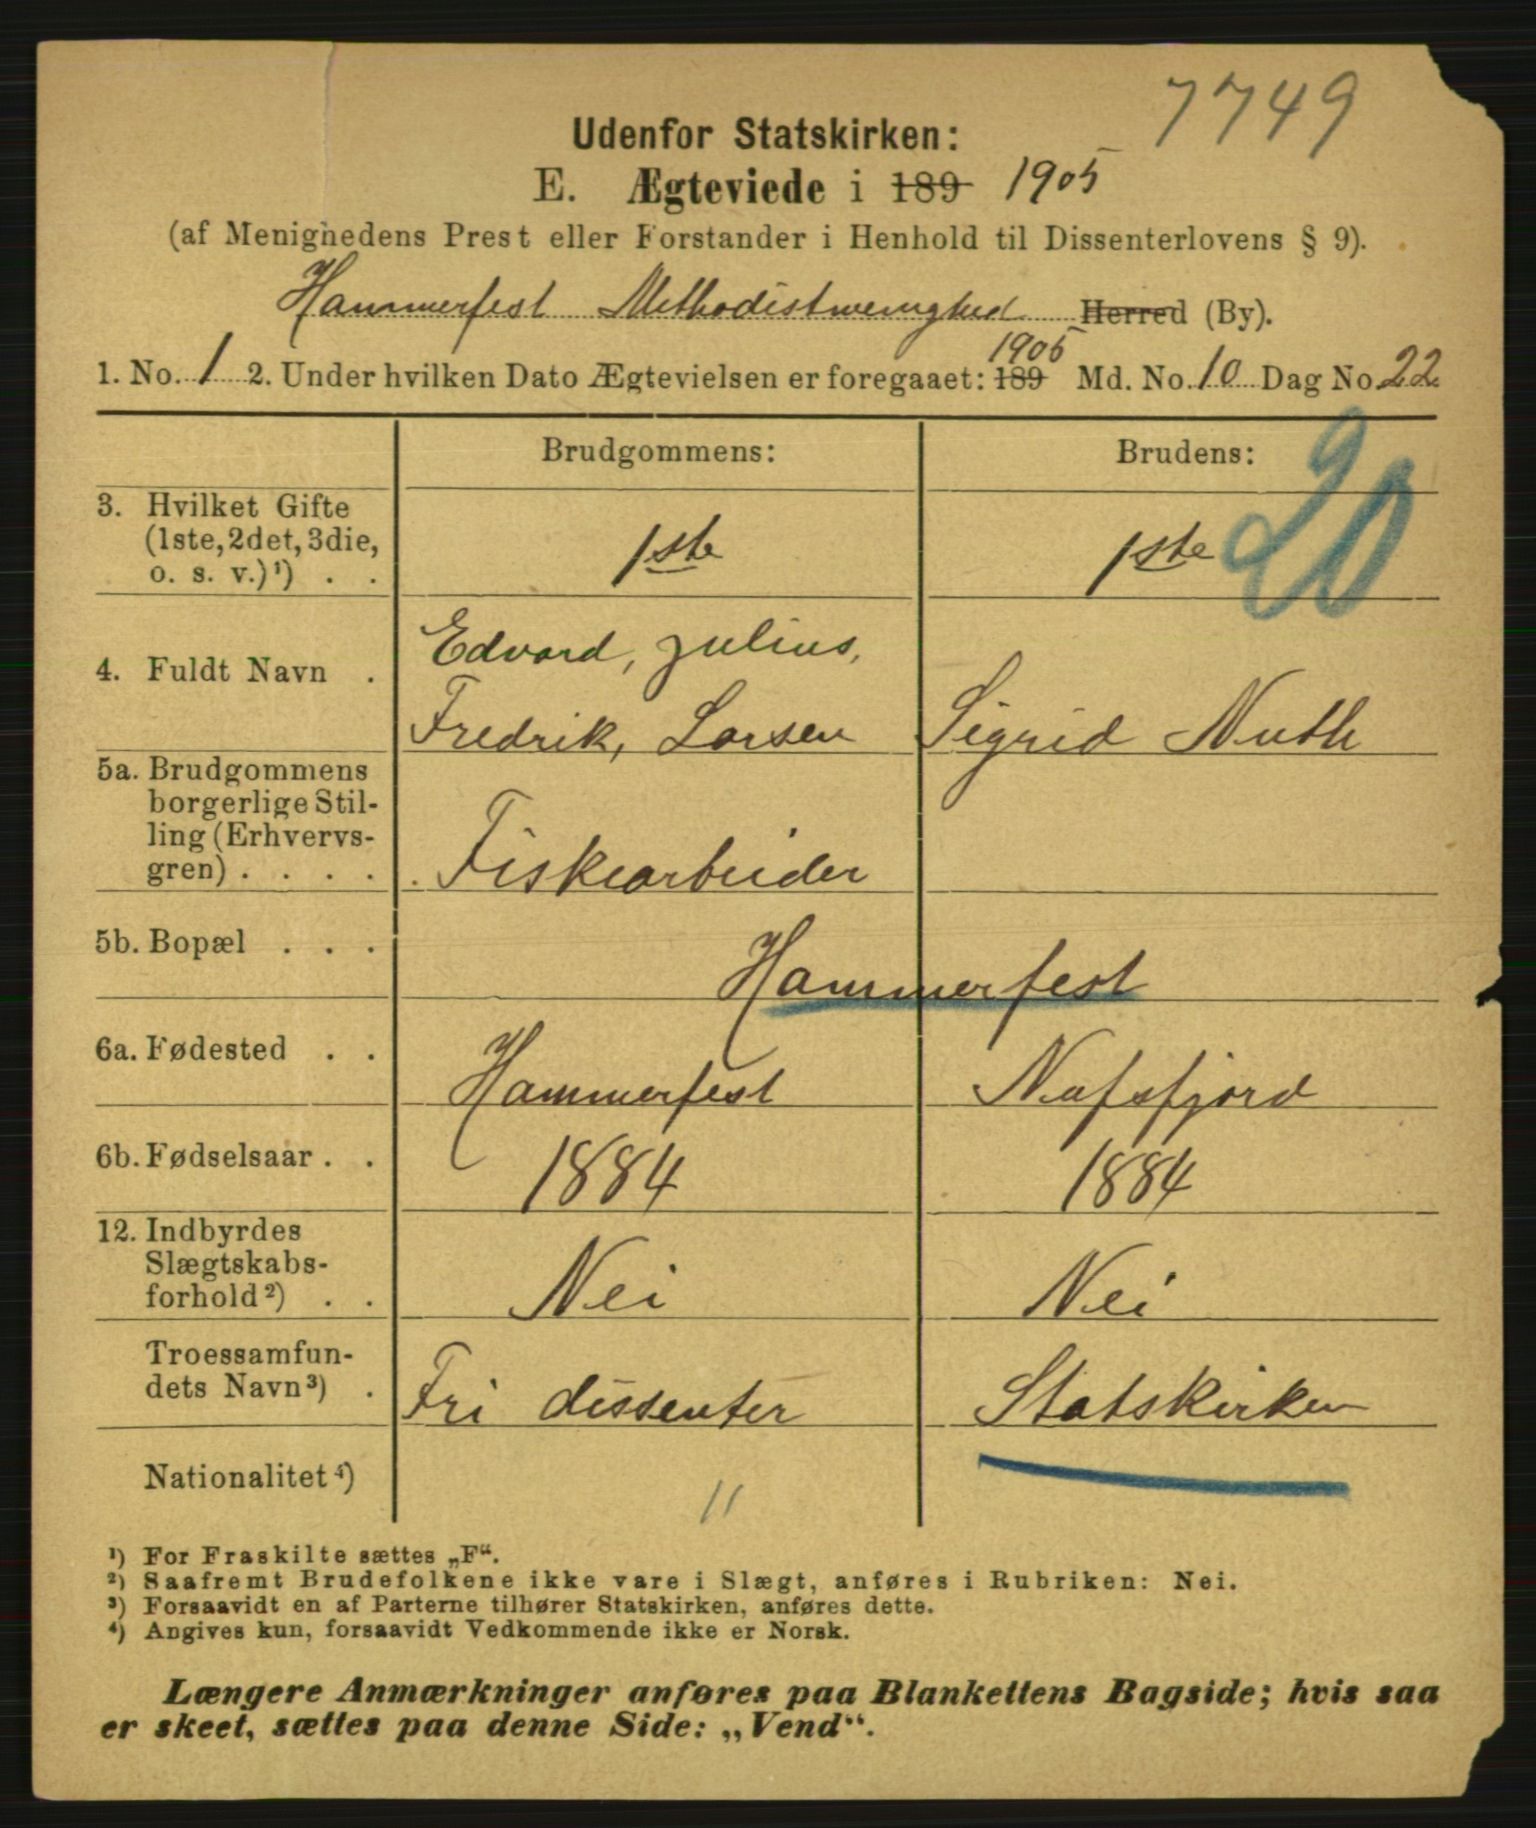 7749
Udenfor Statskirken:
E. Ægteviede i 189 1905
(af Menighedens Prest eller Forstander i Henhold til Dissenterlovens § 9).
Hammerfest Methodistmenighed Herred (By).
1. No. 1 2. Under hvilken Dato Ægtevielsen er foregaaet: 189 1905 Md. No. 10 Dag No. 22
Brudgommens: Brudens:
20
3. Hvilket Gifte
(1ste, 2det, 3die,
o. s. v.)¹) . . 1ste 1ste
Edvard, Julius,
4. Fuldt Navn . Fredrik, Larsen Sigrid Nuth
5a. Brudgommens
borgerlige Stil-
ling (Erhvervs-
gren) . . . . Fiskearbeider
5b. Bopæl . . . Hammerfest
6a. Fødested . . Hammerfest Nufsfjord
6b. Fødselsaar . . 1884 1884
12. Indbyrdes
Slægtskabs-
forhold²) . . Nei Nei
Troessamfun-
dets Navn³) . Fri dissenter Statskirken
Nationalitet⁴) 11
¹) For Fraskilte sættes „F“.
²) Saafremt Brudefolkene ikke vare i Slægt, anføres i Rubriken: Nei.
³) Forsaavidt en af Parterne tilhører Statskirken, anføres dette.
⁴) Angives kun, forsaavidt Vedkommende ikke er Norsk.
Længere Anmærkninger anføres paa Blankettens Bagside; hvis saa
er skeet, sættes paa denne Side: „Vend“.